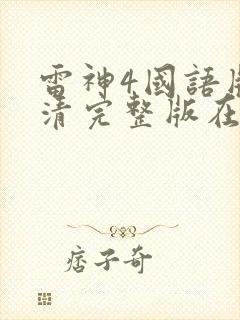 雷神4國語
清完整版在
痞子奇